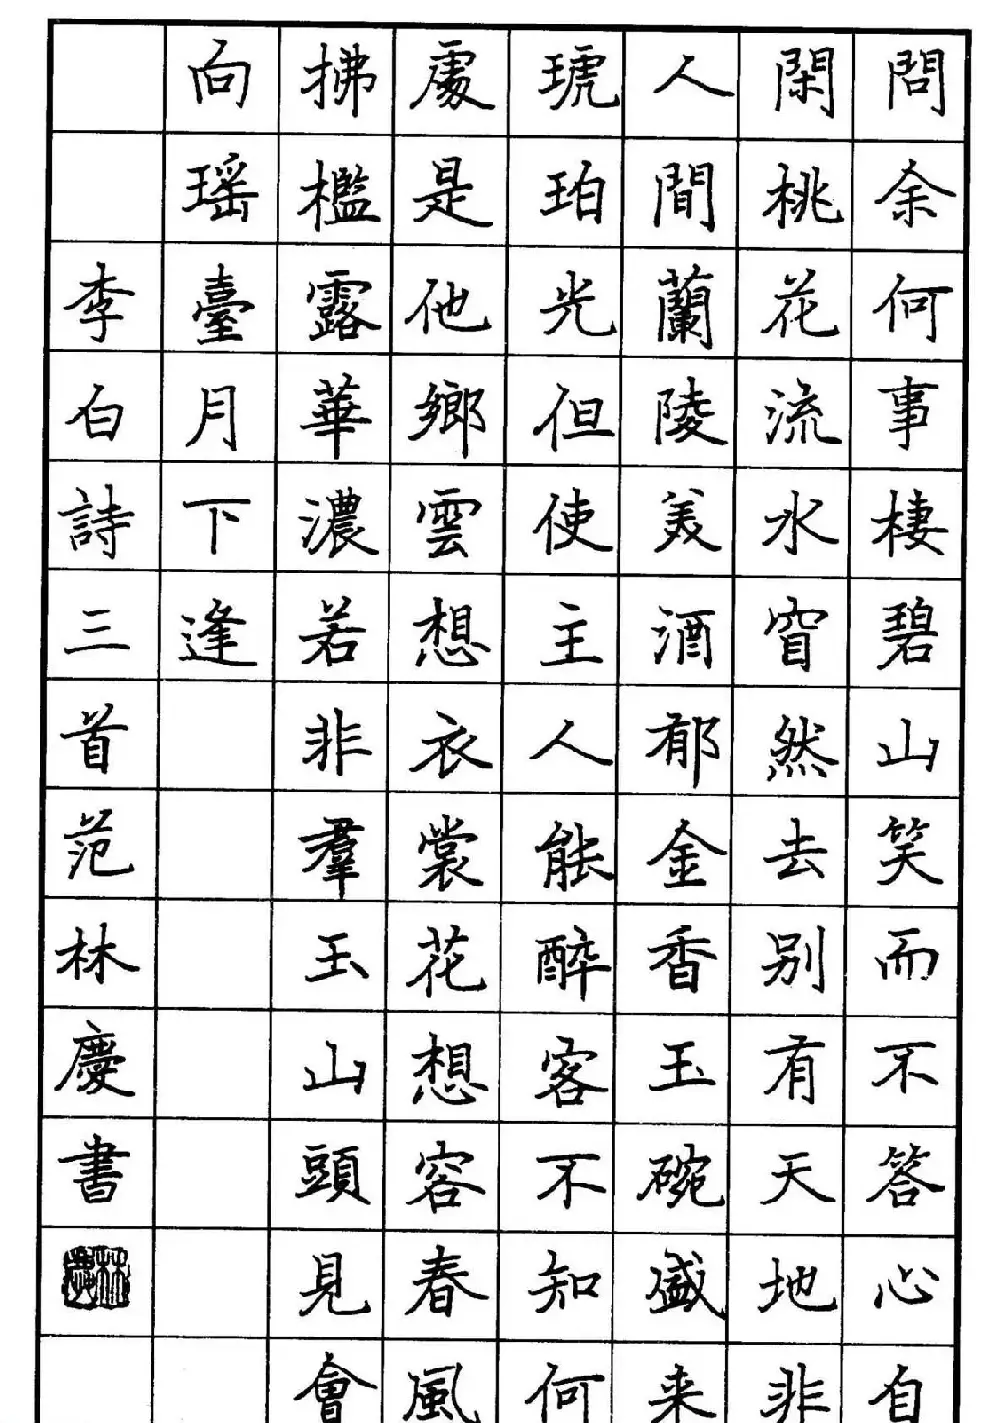 問余何事棲碧山笑而不答心自
閑桃花流水窅然去别有天地非
人間蘭陵美酒郁金香玉碗盛来
琥珀光但使主人能醉客不知何
處是他鄉雲想衣裳花想容春風
拂檻露華濃若非羣玉山頭見會
向瑶臺月下逢
李白詩三首范林慶書